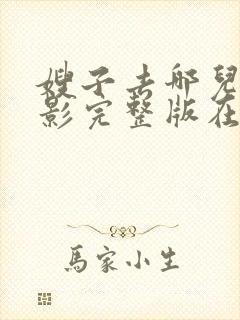 嫂子去哪兒
影完整版在
馬家小生